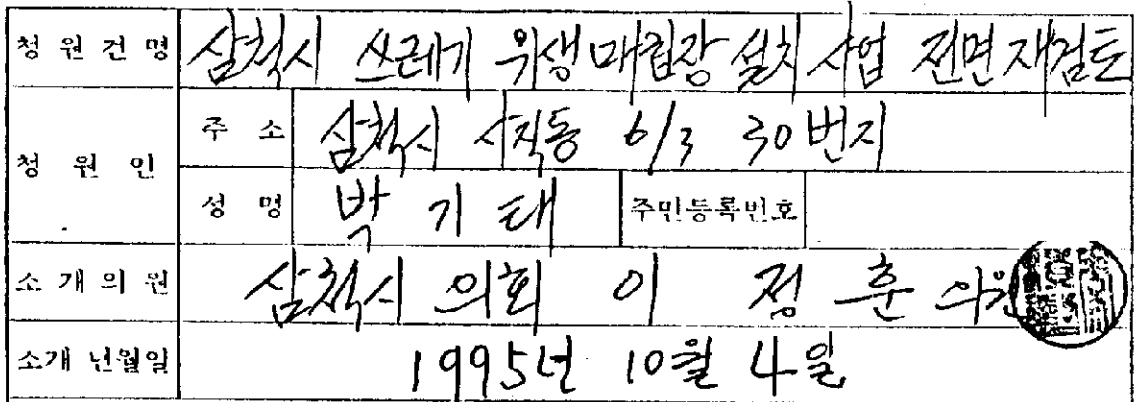 청 원 건 명 삼척시 쓰레기 위생매립장 설치 사업 전면재검토
청 원 인
주 소 삼척시 사직동 6/3 30번지
성 명 박 기 태 주민등록번호
소 개 의 원 삼척시 의회 이 정 훈 의원
소개 년월일 1995년 10월 4일